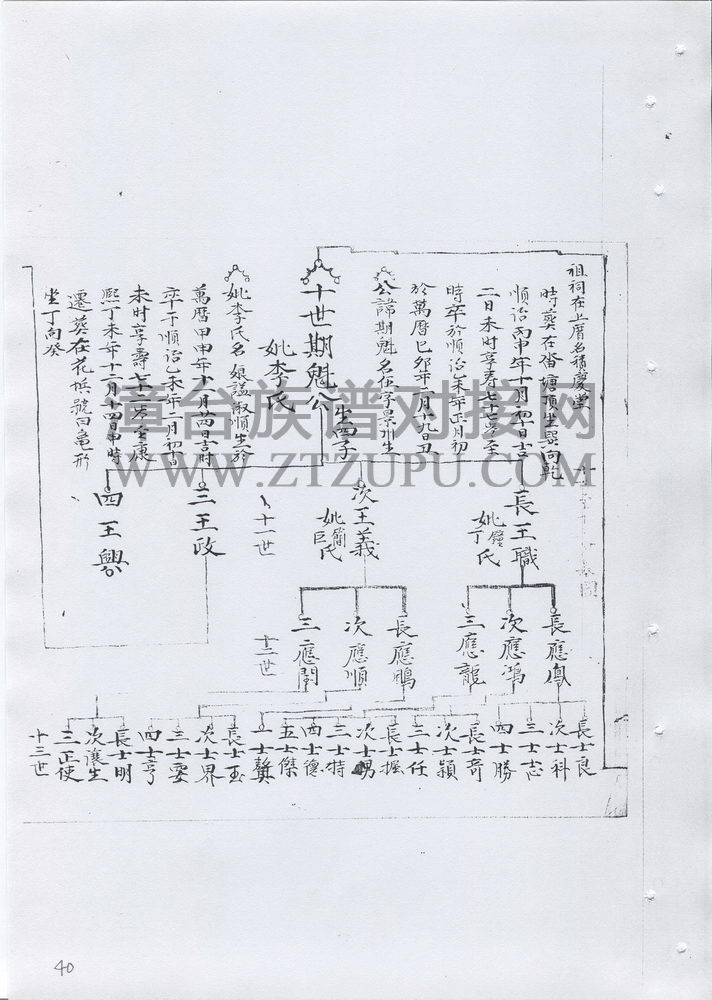 祖祠在上厝名積慶堂
公諱期魁名在字景川生
於萬曆己卯年二月十九日丑
時卒於順治乙未年正月初
二日未時享壽七十七歲至
順治丙申年十月初十日吉
時葬在
塘頂坐巽向乾
十世期魁公
妣李氏
生四子
妣李氏名娘諡淑順生於
萬曆甲申年十一月廿四日吉時
卒于順治乙未年二月初十日
未时享壽七十二歲至康
熙丁未年十二月十四日申時
遷葬在花
號曰亀形
坐丁向癸
長王職
妣鐘氏
丁
次王義
妣簡氏
巨
三王政
四王興
十一世
長應鳳
次應鴻
三應龍
長應鵬
次應順
三應閏
十二世
長士良
次士科
三士志
四士勝
長士奇
次士穎
三士任
長士握
次士勇
三士特
四士德
五士傑
士龔
長士玉
次士界
三士
四士亨
長士明
次濂生
三正使
十三世
漳台族谱对接网
WWW.ZTZUPU.COM
40